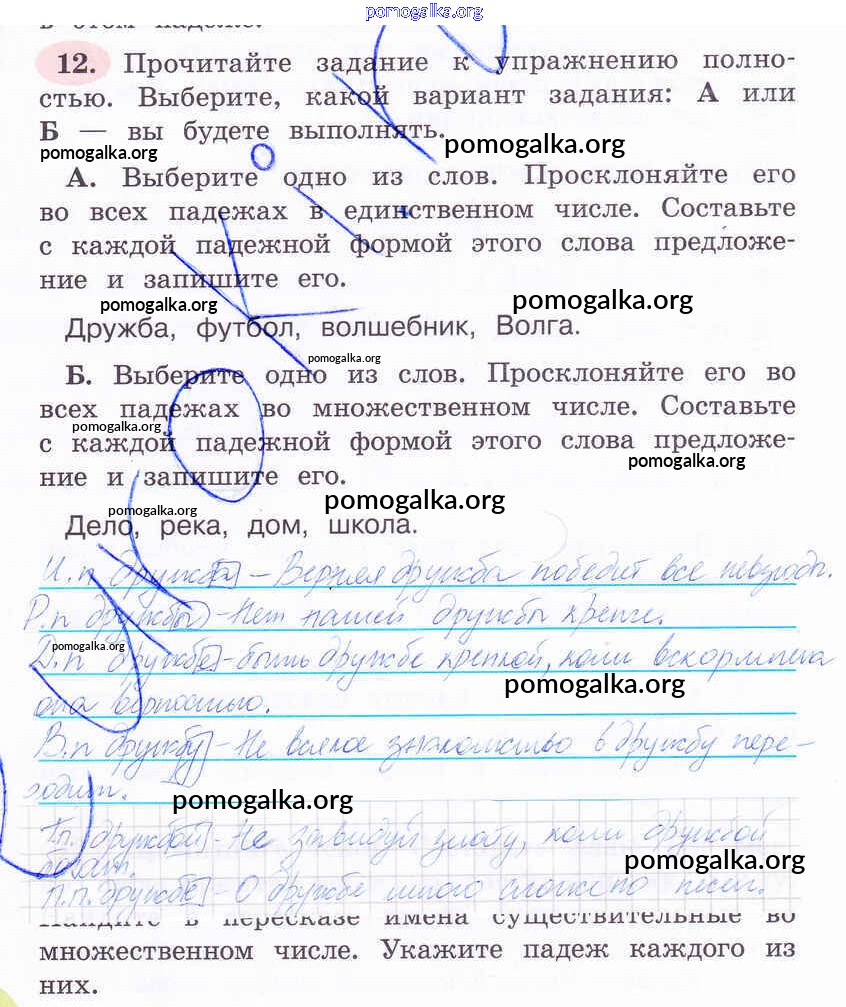 pomogalka.org
в этом падеже.
12. Прочитайте задание к упражнению полно-
стью. Выберите, какой вариант задания: А или
Б — вы будете выполнять.
pomogalka.org pomogalka.org
А. Выберите одно из слов. Просклоняйте его
во всех падежах в единственном числе. Составьте
с каждой падежной формой этого слова предложе-
ние и запишите его.
pomogalka.org pomogalka.org
Дружба, футбол, волшебник, Волга.
pomogalka.org
Б. Выберите одно из слов. Просклоняйте его во
всех падежах во множественном числе. Составьте
pomogalka.org
с каждой падежной формой этого слова предложе-
pomogalka.org
ние и запишите его.
pomogalka.org
pomogalka.org
Дело, река, дом, школа.
И.п дружба – Верная дружба победит все невзгоды.
Р.п дружбы – Нет нашей дружбы крепче.
pomogalka.org
Д.п дружбе – быть дружбе крепкой, коли вскормлена
pomogalka.org
она верностью.
В.п дружбу – Не всякое знакомство в дружбу пере-
ходит.
pomogalka.org
Тп. дружбой – Не завидуй злату, коли дружбой
богат.
pomogalka.org
П.п. дружбе – О дружбе много сложено песен.
Найдите в пересказе имена существительные во
множественном числе. Укажите падеж каждого из
них.